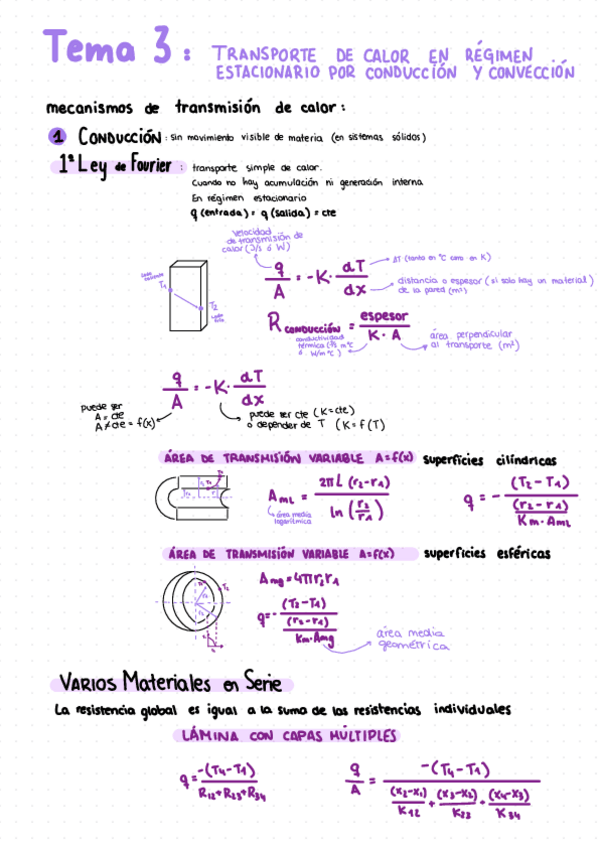 Tema 3: TRANSPORTE DE CALOR EN RÉGIMEN
ESTACIONARIO POR CONDUCCIÓN Y CONVECCIÓN
mecanismos de transmisión de calor:
1 CONDUCCIÓN: sin movimiento visible de materia (en sistemas sólidos)
1ª Ley de Fourier: transporte simple de calor.
Cuando no hay acumulación ni generación interna
En régimen estacionario
q (entrada) = q (salida) = cte
velocidad
de transmisión de
calor (J/s ó W)
q/A = -K · dT/dx
ΔT (tanto en °C como en K)
distancia o espesor (si solo hay un material)
de la pared (m²)
T1
T2
R CONDUCCIÓN = espesor / K · A
conductividad
térmica
ó W/m°C)
área perpendicular
al transporte (m²)
q/A = -K · dT/dx
puede ser
A = cte
A ≠ cte = f(x)
puede ser cte (K=cte)
o depender de T (K = f(T)
ÁREA DE TRANSMISIÓN VARIABLE A=f(x) superficies cilíndricas
A mL = 2πL (r2-r1) / ln (r2/r1)
área media
logarítmica
q = - (T2-T1) / ((r2-r1) / Km·AmL)
ÁREA DE TRANSMISIÓN VARIABLE A=f(x) superficies esféricas
Amg = 4πr2r1
q = - (T2-T1) / ((r2-r1) / Km·Amg)
área media
geométrica
VARIOS Materiales en Serie
La resistencia global es igual a la suma de las resistencias individuales
LÁMINA CON CAPAS MÚLTIPLES
q = -(T4-T1) / R12+R23+R34
q/A = -(T4-T1) / ((x2-x1)/K12 + (x3-x2)/K23 + (x4-x3)/K34)